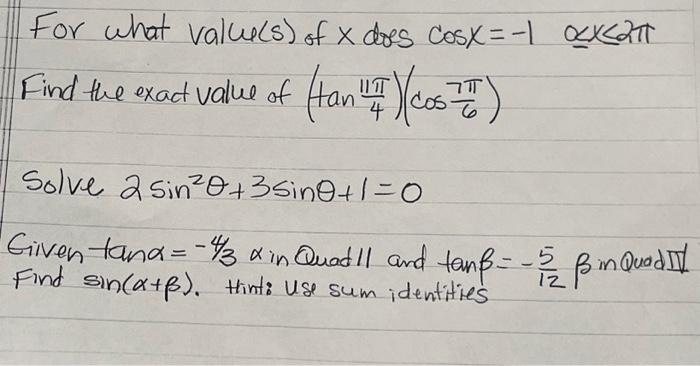 For what value(s) of x does cosx = -1 0≤x<2π
Find the exact value of (tan 11π/4)(cos 7π/6)
Solve 2 sin²θ + 3sinθ + 1 = 0
Given tanα = -4/3 α in Quad II and tanβ = - 5/12 β in Quad IV
Find sin(α+β). Hint: Use sum identities